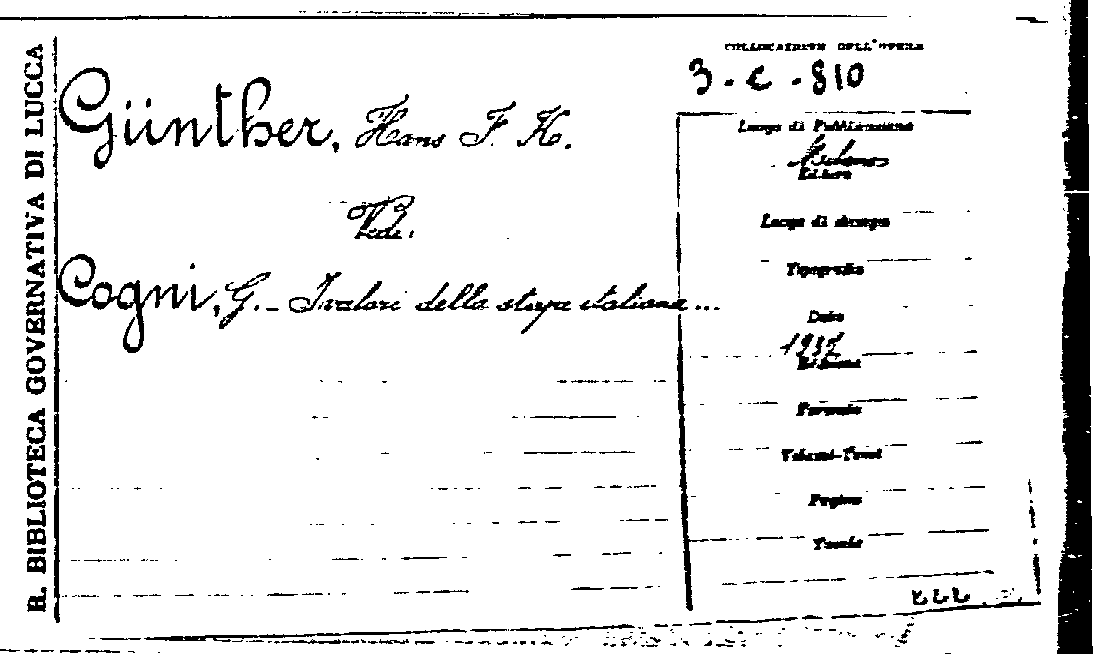 R. BIBLIOTECA GOVERNATIVA DI LUCCA
COLLOCAZIONE DELL'OPERA
3-C-810
Günther, Hans F. K.
Vedi.
Cogni, G. - I valori della stirpe italiana...
Luogo di Pubblicazione
Milano
Editore
Luogo di stampa
Tipografia
Data
1937
Edizione
Formato
Volumi-Tomi
Pagine
Tavole